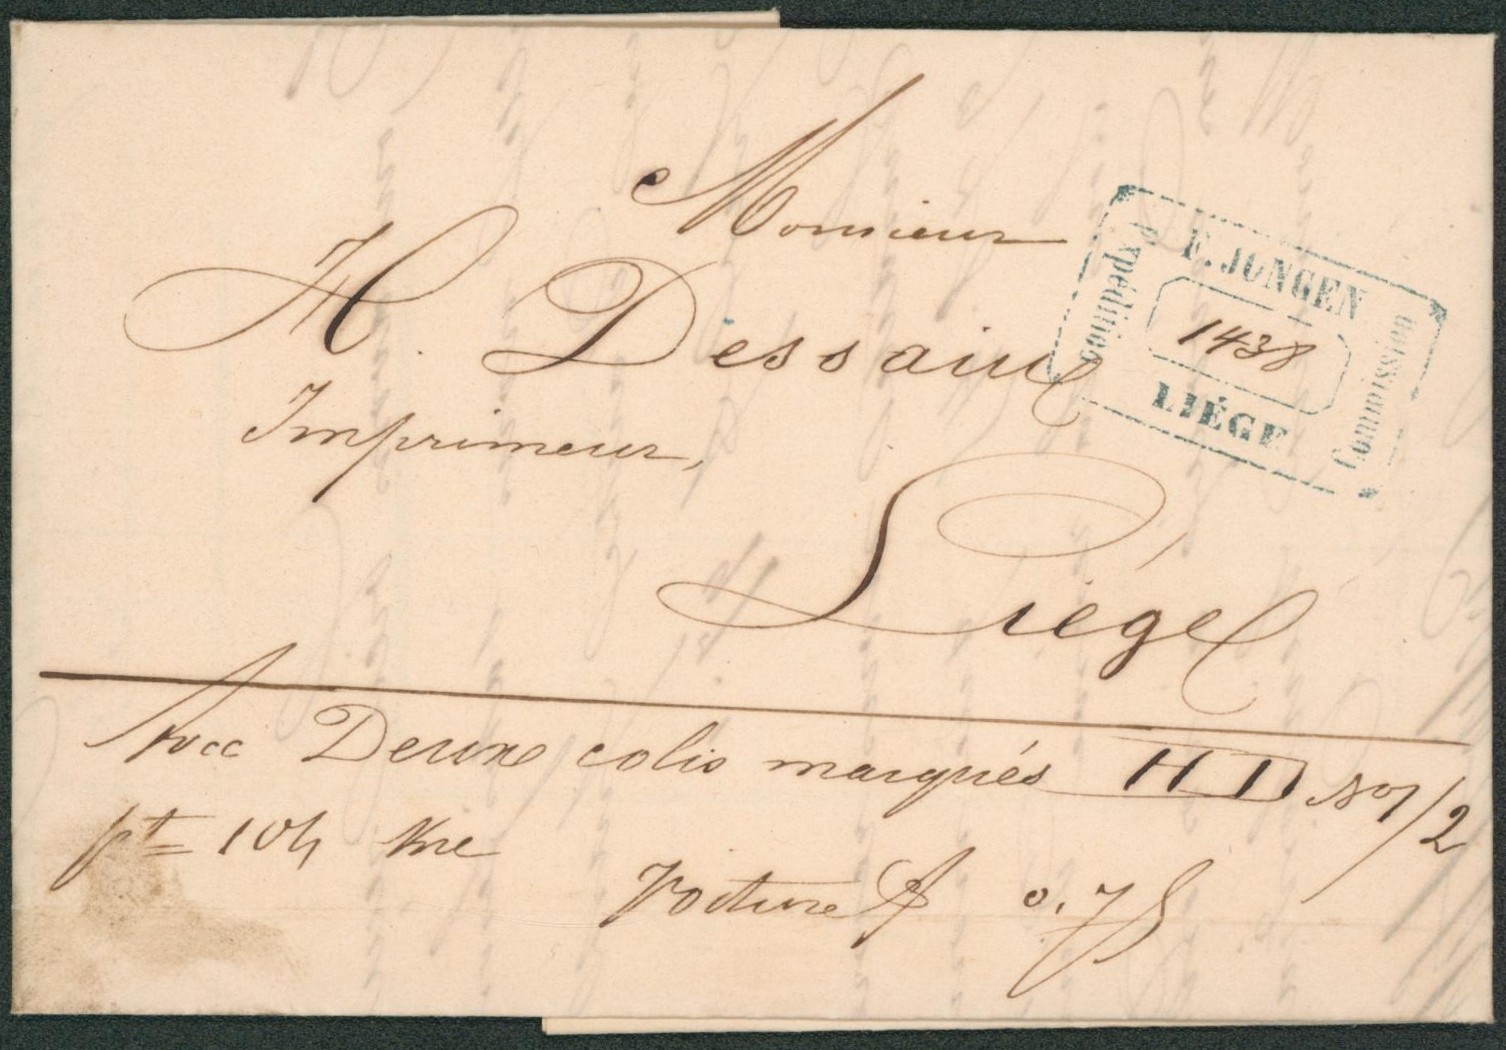 Monsieur
H. Dessain
Imprimeur,
Liége
F. JONGEN
Expédition
1438
Commission
LIÉGE
Avec Deux colis marqués H D No 1/2
pt 104 Kre
Voiture f 0.75